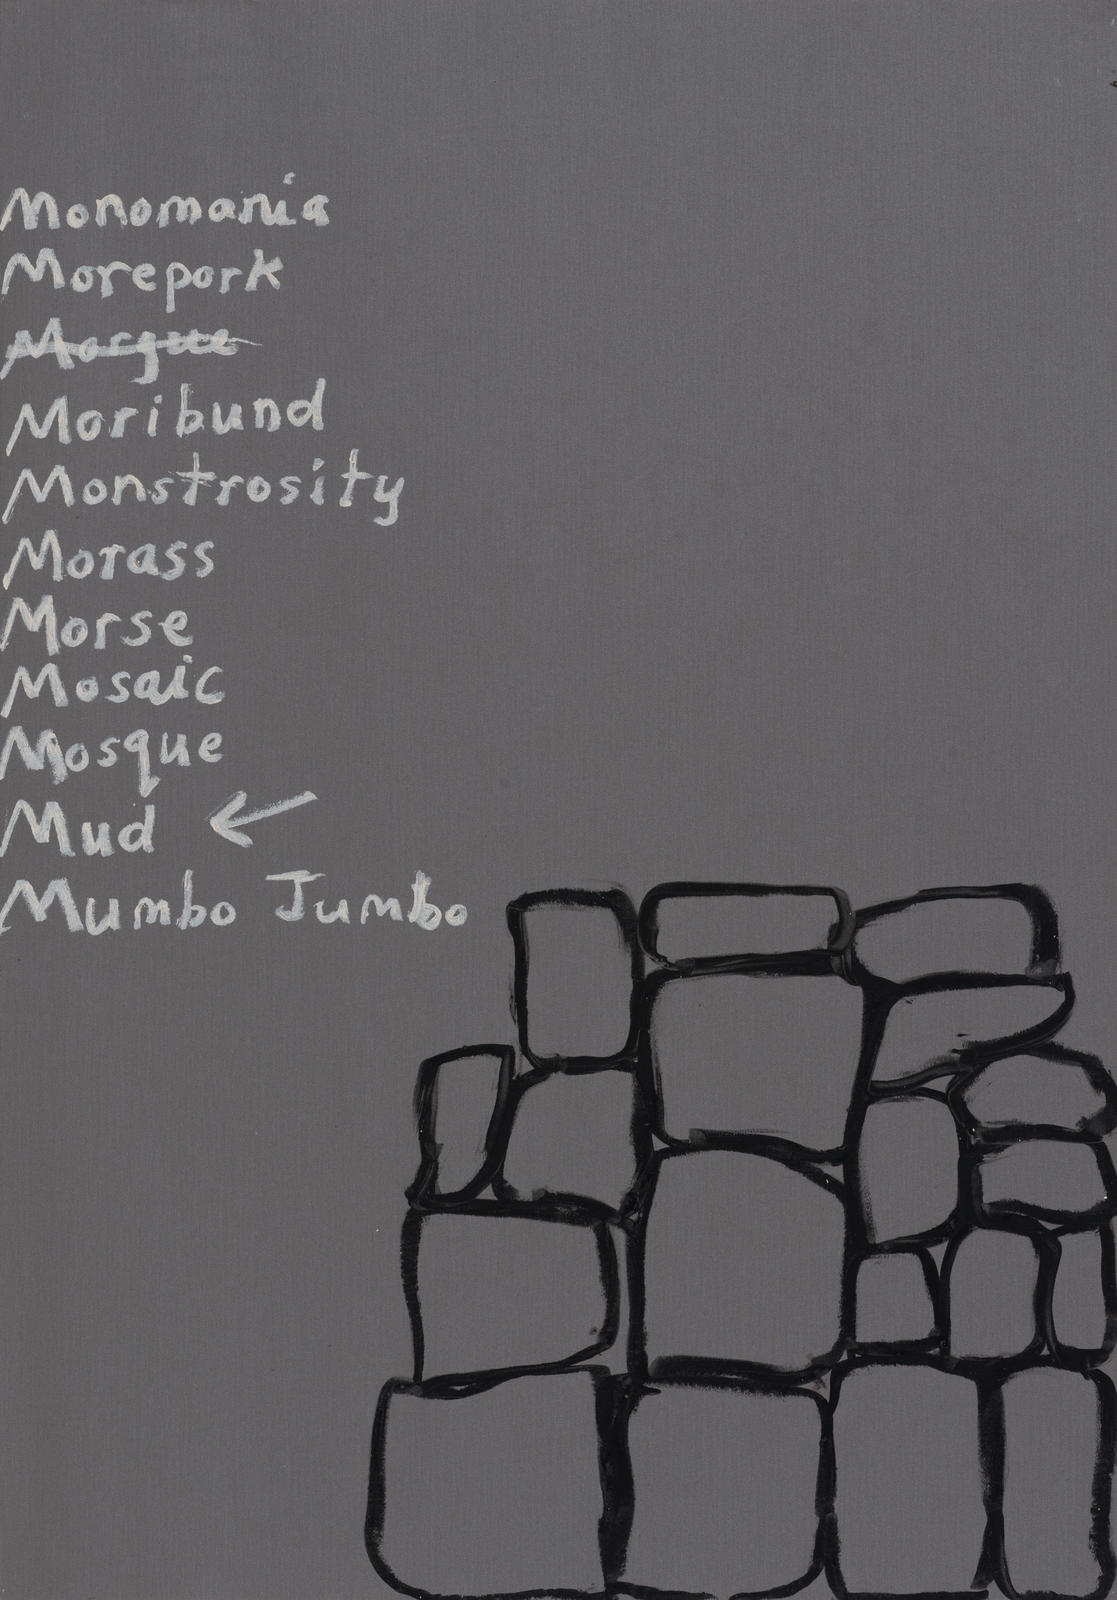 Monomania
Morepork
Morgue
Moribund
Monstrosity
Morass
Morse
Mosaic
Mosque
Mud ←
Mumbo Jumbo